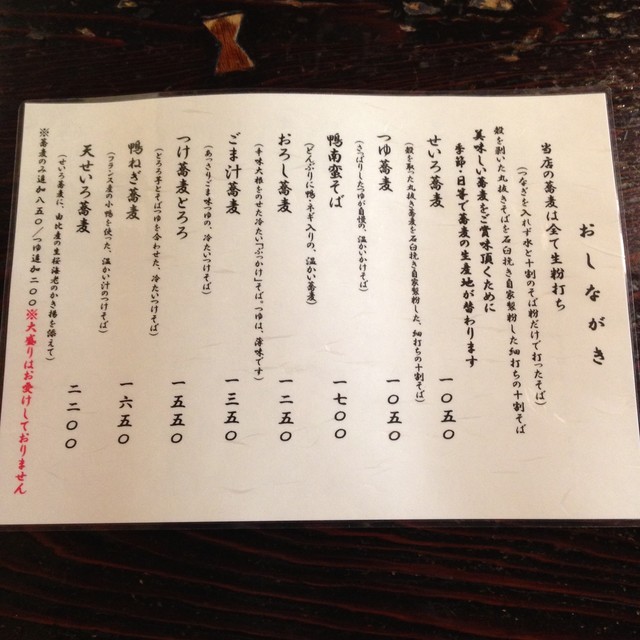 おしながき
当店の蕎麦は全て生粉打ち
(つなぎを入れず水と十割のそば粉だけで打ったそば)
殻を剥いた丸抜きそばを石臼挽き自家製粉した細打ちの十割そば
美味しい蕎麦をご賞味頂くために
季節・日単で蕎麦の生産地が替わります
せいろ蕎麦 一〇五〇
(殻を取った丸抜き蕎麦を石臼挽き自家製粉した、細打ちの十割そば)
つゆ蕎麦 一〇五〇
(さっぱりしたつゆが自慢の、温かいかけそば)
鴨南蛮そば 一七〇〇
(どんぶりに鴨・ネギ入りの、温かい蕎麦)
おろし蕎麦 一二五〇
(辛味大根をのせた冷たい「ぶっかけ」そば。つゆは、薄味です)
ごま汁蕎麦 一三五〇
(あっさりごま味つゆの、冷たいつけそば)
つけ蕎麦とろろ 一五五〇
(とろろ芋とそばつゆを合わせた、冷たいつけそば)
鴨ねぎ蕎麦 一六五〇
(フランス産の小鴨を使った、温かい汁のつけそば)
天せいろ蕎麦 二二〇〇
(せいろ蕎麦に、由比産の生桜海老のかき揚を添えて)
※蕎麦のみ追加八五〇/つゆ追加二〇〇※大盛りはお受けしておりません